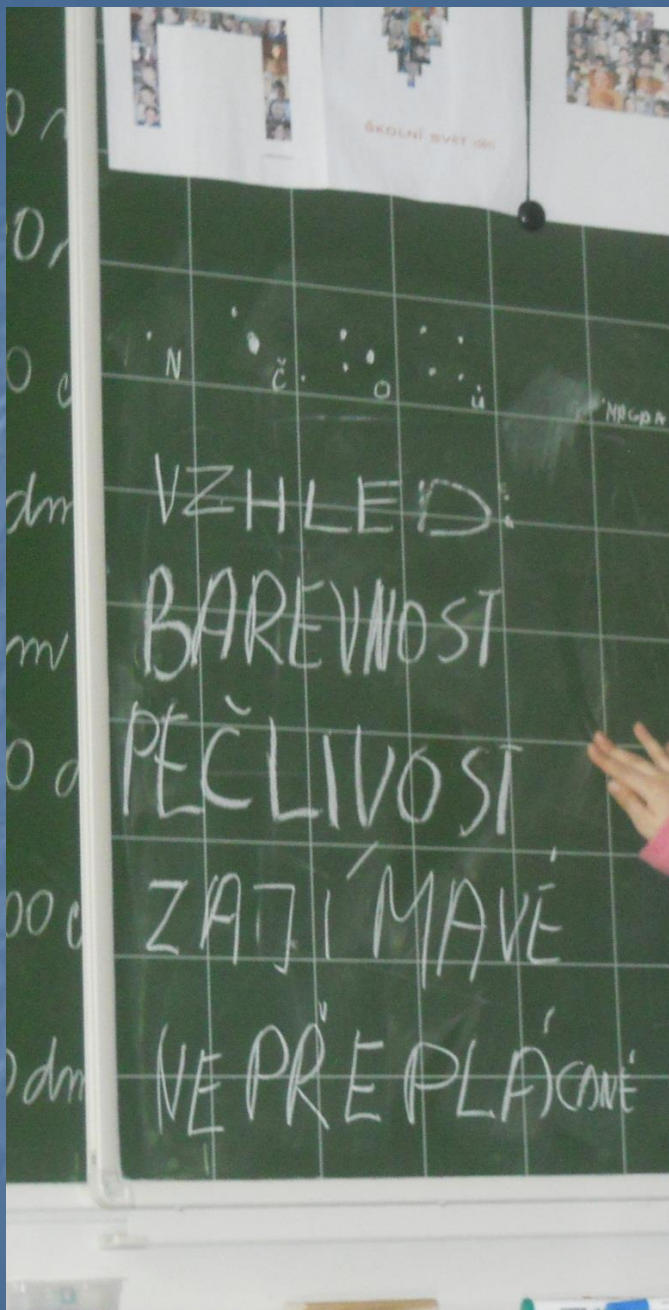 ŠKOLNÍ SVĚT
N Č. O Ú
MAGDA
VZHLED:
BAREVNOST
PEČLIVOST
ZAJÍMAVÉ
NEPŘEPLÁCANÉ
dm
m
dm